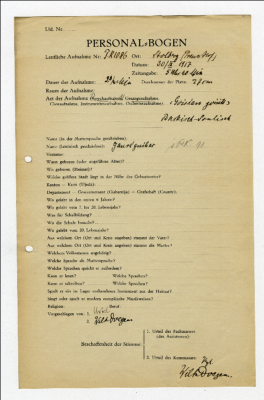 Lfd. Nr.
PERSONAL-BOGEN
Lautliche Aufnahme Nr.: Ort:
Datum:
Zeitangabe:
Dauer der Aufnahme: Durchmesser der Platte: 27cm
Raum der Aufnahme:
Art der Aufnahme (Sprechaufnahme, Gesangsaufnahme,
Choraufnahme, Instrumentenaufnahme, Orchesteraufnahme):
Name (in der Muttersprache geschrieben):
Name (lateinisch geschrieben):
Vorname:
Wann geboren (oder ungefähres Alter)?
Wo geboren (Heimat)?
Welche größere Stadt liegt in der Nähe des Geburtsortes?
Kanton — Kreis (Ujedz):
Department — Gouvernement (Gubernija) — Grafschaft (County):
Wo gelebt in den ersten 6 Jahren?
Wo gelebt vom 7. bis 20. Lebensjahr?
Was für Schulbildung?
Wo die Schule besucht?
Wo gelebt vom 20. Lebensjahr?
Aus welchem Ort (Ort und Kreis angeben) stammt der Vater?
Aus welchem Ort (Ort und Kreis angeben) stammt die Mutter?
Welchem Volksstamm angehörig?
Welche Sprache als Muttersprache?
Welche Sprachen spricht er außerdem?
Kann er lesen? Welche Sprachen?
Kann er schreiben? Welche Sprachen?
Spielt er ein im Lager vorhandenes Instrument aus der Heimat?
Singt oder spielt er modern europäische Musikweisen?
Religion: Beruf:
Vorgeschlagen von: 1.
2. Wilh. Doegen
Beschaffenheit der Stimme:
1. Urteil des Fachmannes
(des Assistenten)
2. Urteil des Kommissars:
Wilh. Doegen.